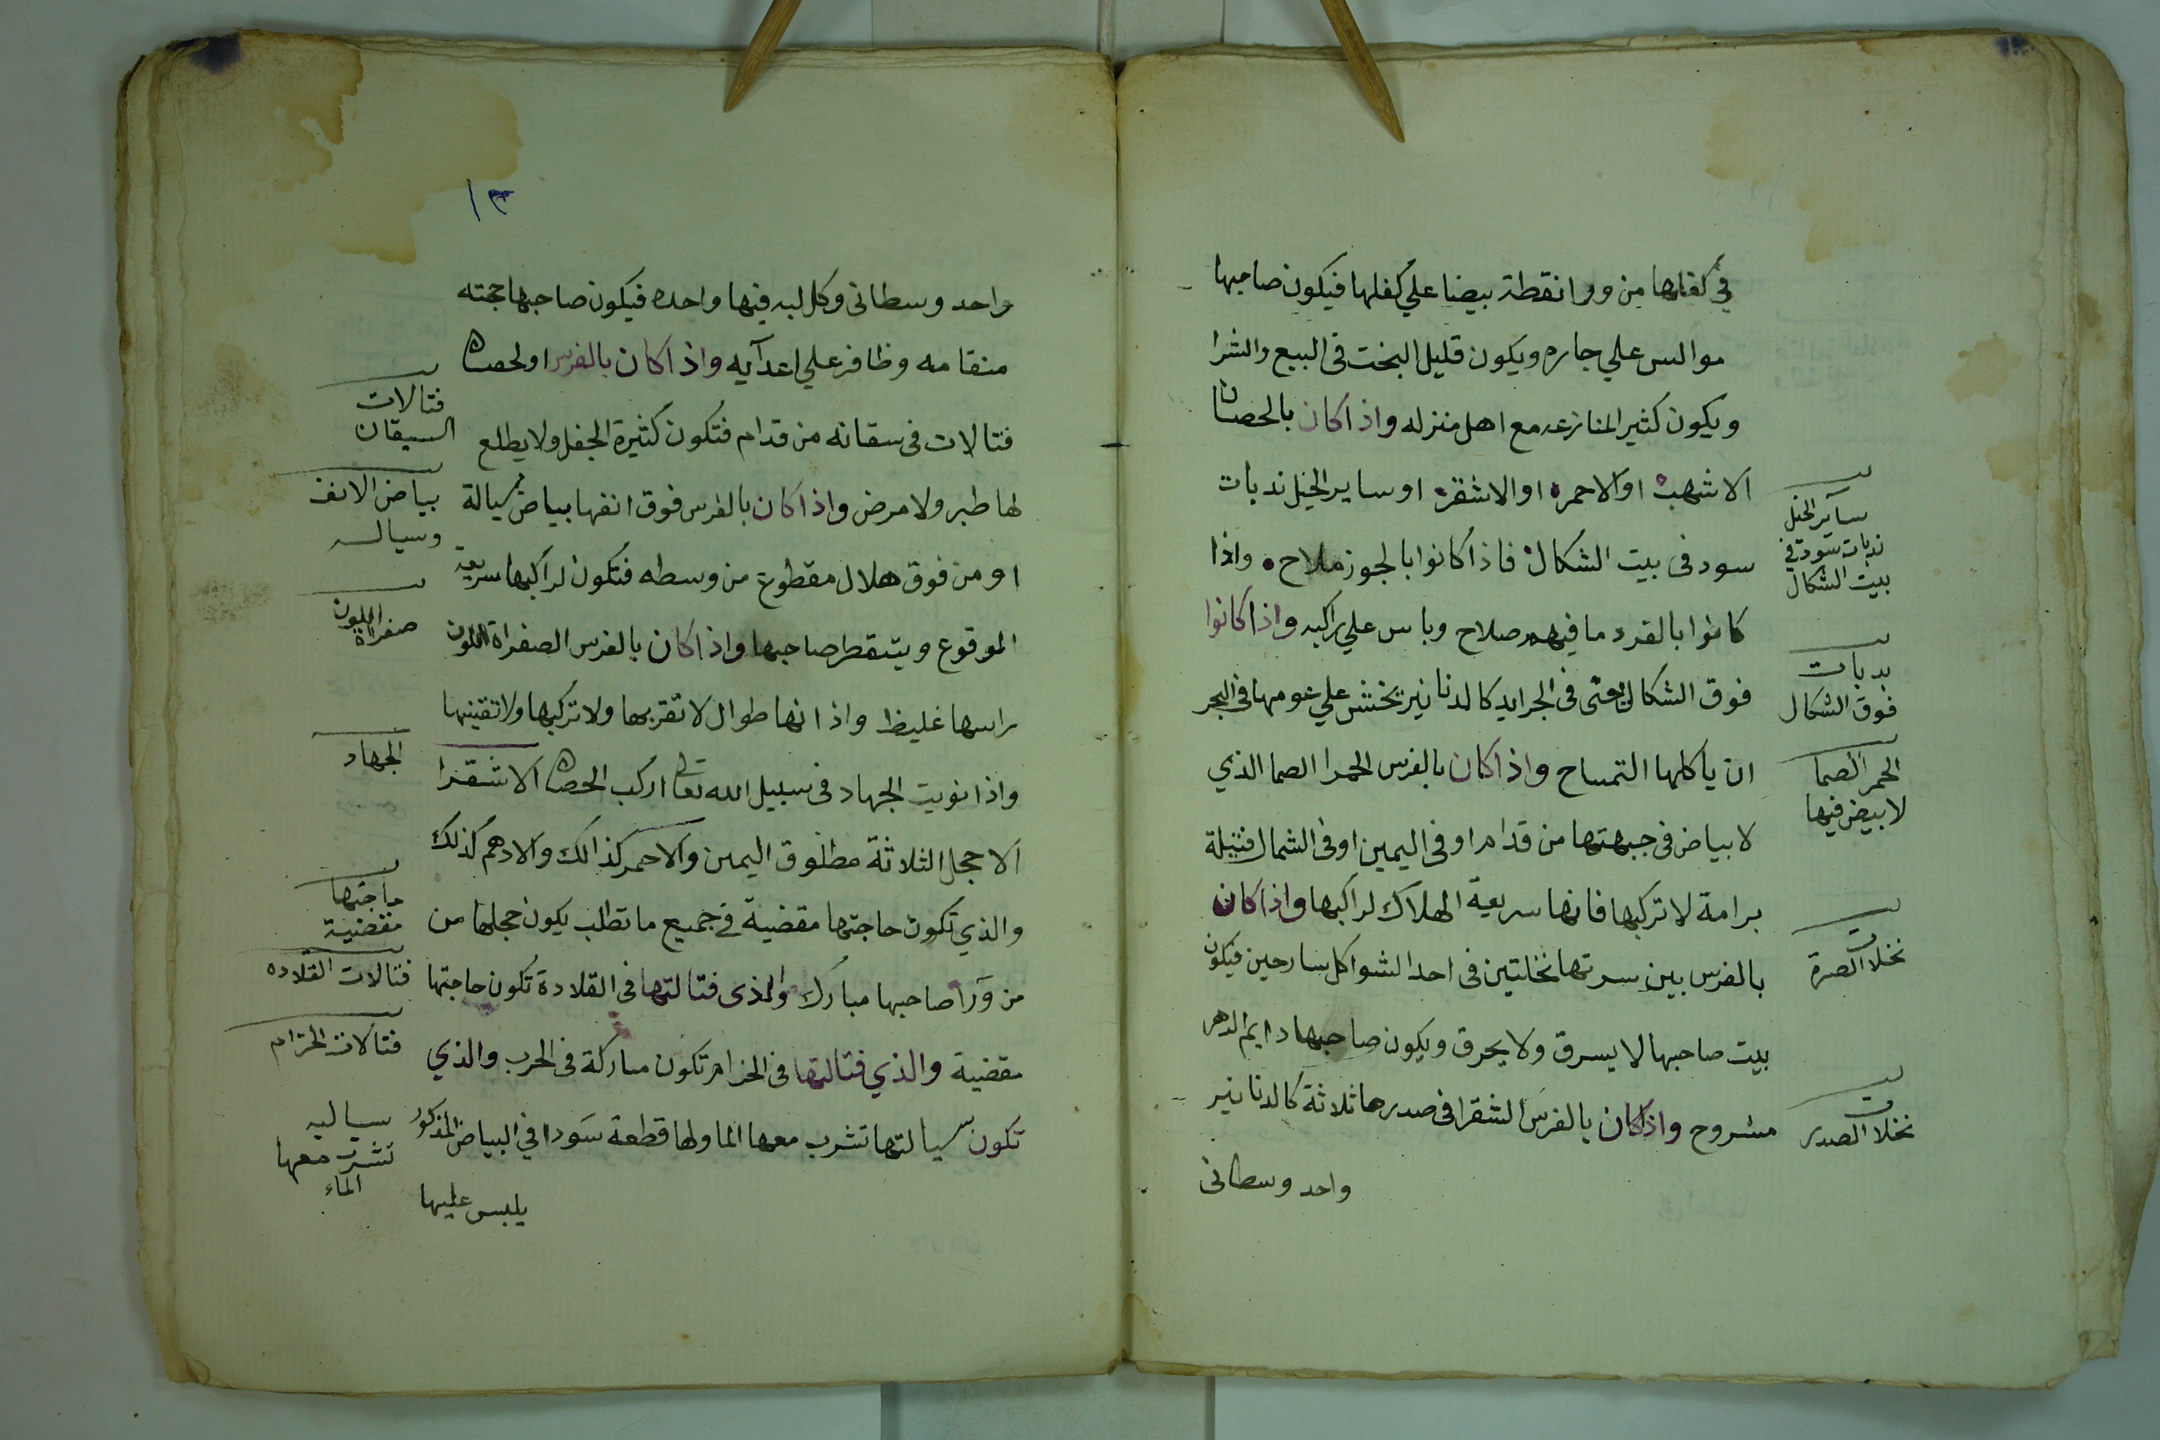 في كفلها من ورا نقطة بيضا علي كفلها فيكون صاحبها
موالس علي جاره ويكون قليل البخت فى البيع والشرا
ويكون كثير المنازعه مع اهل منزله واذا كان بالحصان
الاشهب او الاحمر او الاشقر او ساير الخيل ندبات
سود فى بيت الشكال فاذا كانوا بالجوز ملاح واذا
كانوا بالفرد ما فيهم صلاح وباس علي راكبه واذا كانوا
فوق الشكال يعنى فى الجرايد كالدنانير يخشى علي عومها فى البحر
ان ياكلها التمساح واذا كان بالفرس الحمرا الصما الذي
لا بياض فى جبهتها من قدام او فى اليمين او فى الشمال فتيلة
برامة لا تركبها فانها سريعة الهلاك لراكبها واذا كان
بالفرس بين سرتها نخلتين فى احد الشواكل سارحين فيكون
بيت صاحبها لا يسرق ولا يحرق ويكون صاحبها دايم الدهر
مشروح واذا كان بالفرس الشقرا فى صدرها ثلاثة كالدنانير
واحد وسطانى
ساير الخيل
ندبات سود في
بيت الشكال
ندبات
فوق الشكال
الحمر الصما
لا بيض فيها
نخلات الصرة
نخلات الصدر
١٣
واحد وسطانى وكل لبه فيها واحده فيكون صاحبها حجته
منقامه وظافر علي اعدآيه واذا كان بالفرس او لحصان
فتالات فى سقانه من قدام فتكون كثيرة الجفل ولا يطلع
لها طبر ولا مرض واذا كان بالفرس فوق انفها بياض سيالة
او من فوق هلال مقطوع من وسطه فتكون لراكبها سريعة
الموقوع ويتقطر صاحبها واذا كان بالفرس الصفراة اللون
راسها غليظ واذانها طوال لا تقربها ولا تركبها ولا تقنيها
واذا نويت الجهاد فى سبيل الله تعالى اركب الحصان الاشقرا
الاحجل الثلاثة مطلوق اليمين والاحمر كذالك والادهم كذلك
والذي تكون حاجتها مقضية في جميع ما تطلب يكون حجلها من
من ورآ صاحبها مبارك والذى فتالتها فى القلادة تكون حاجتها
مقضية والذي فتالتها فى الحزام تكون مباركة فى الحرب والذي
تكون سيالتها تشرب معها الما ولها قطعة سودا في البياض المذكور
يلبس عليها
فتالات
السيقان
بياض الانف
وسياله
صفراة اللون
الجهاد
حاجتها
مقضية
فتالات القلاده
فتالات الحزام
سياليه
تشرب معها
الماء